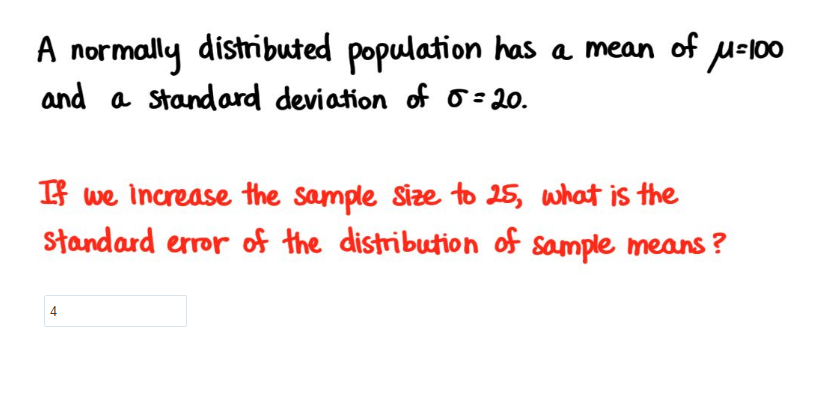 A normally distributed population has a mean of μ=100
and a standard deviation of σ=20.
If we increase the sample size to 25, what is the
standard error of the distribution of sample means?
4